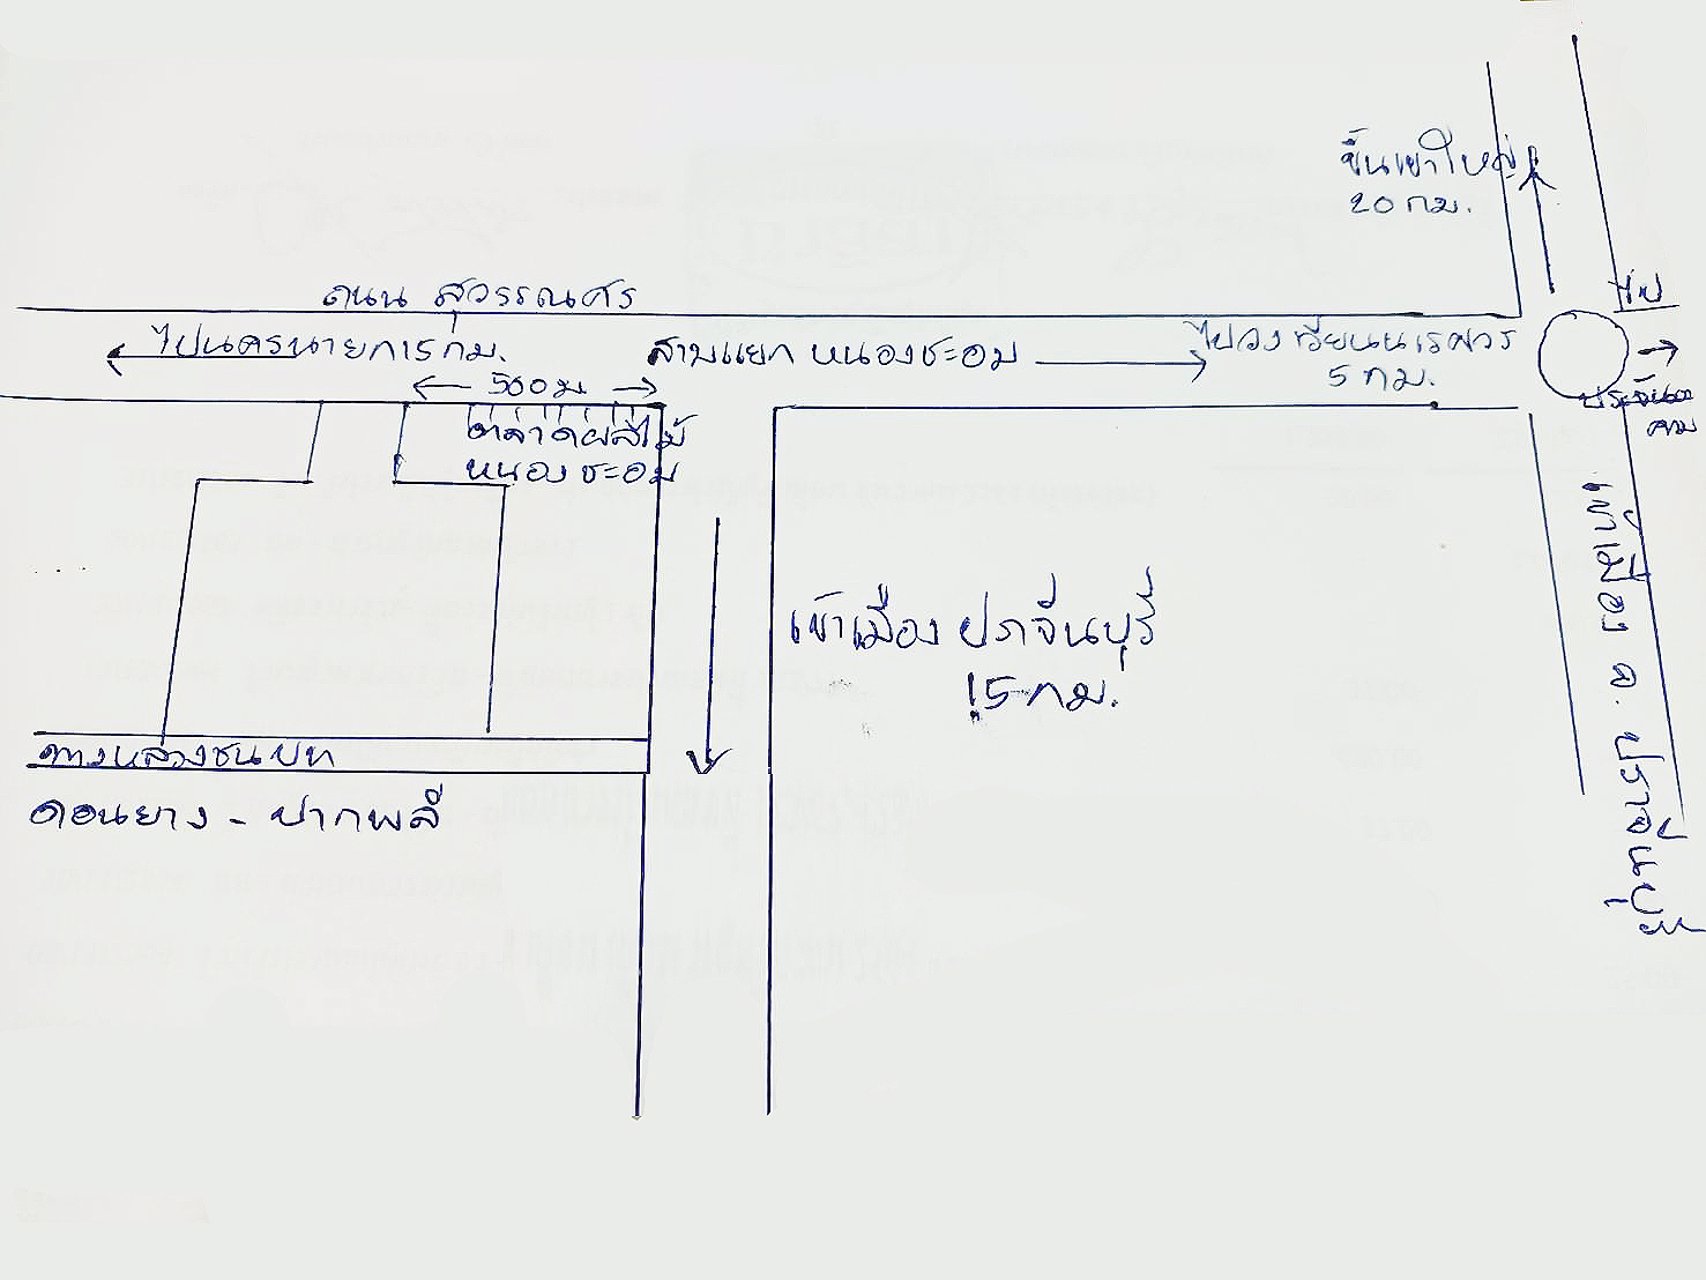 ขึ้นเขาใหญ่
20 กม.
ถนน สุวรรณศร
ไป
ไปนครนายก 15 กม.
สามแยก หนองชะอม
ไปวงเวียนนเรศวร
5 กม.
500 ม
ประจันต
คาม
ตลาดผลไม้
หนองชะอม
เข้าเมือง ปราจีนบุรี
15 กม.
เข้าเมือง จ. ปราจีนบุรี
ทางหลวงชนบท
ดอนยาง - ปากพลี